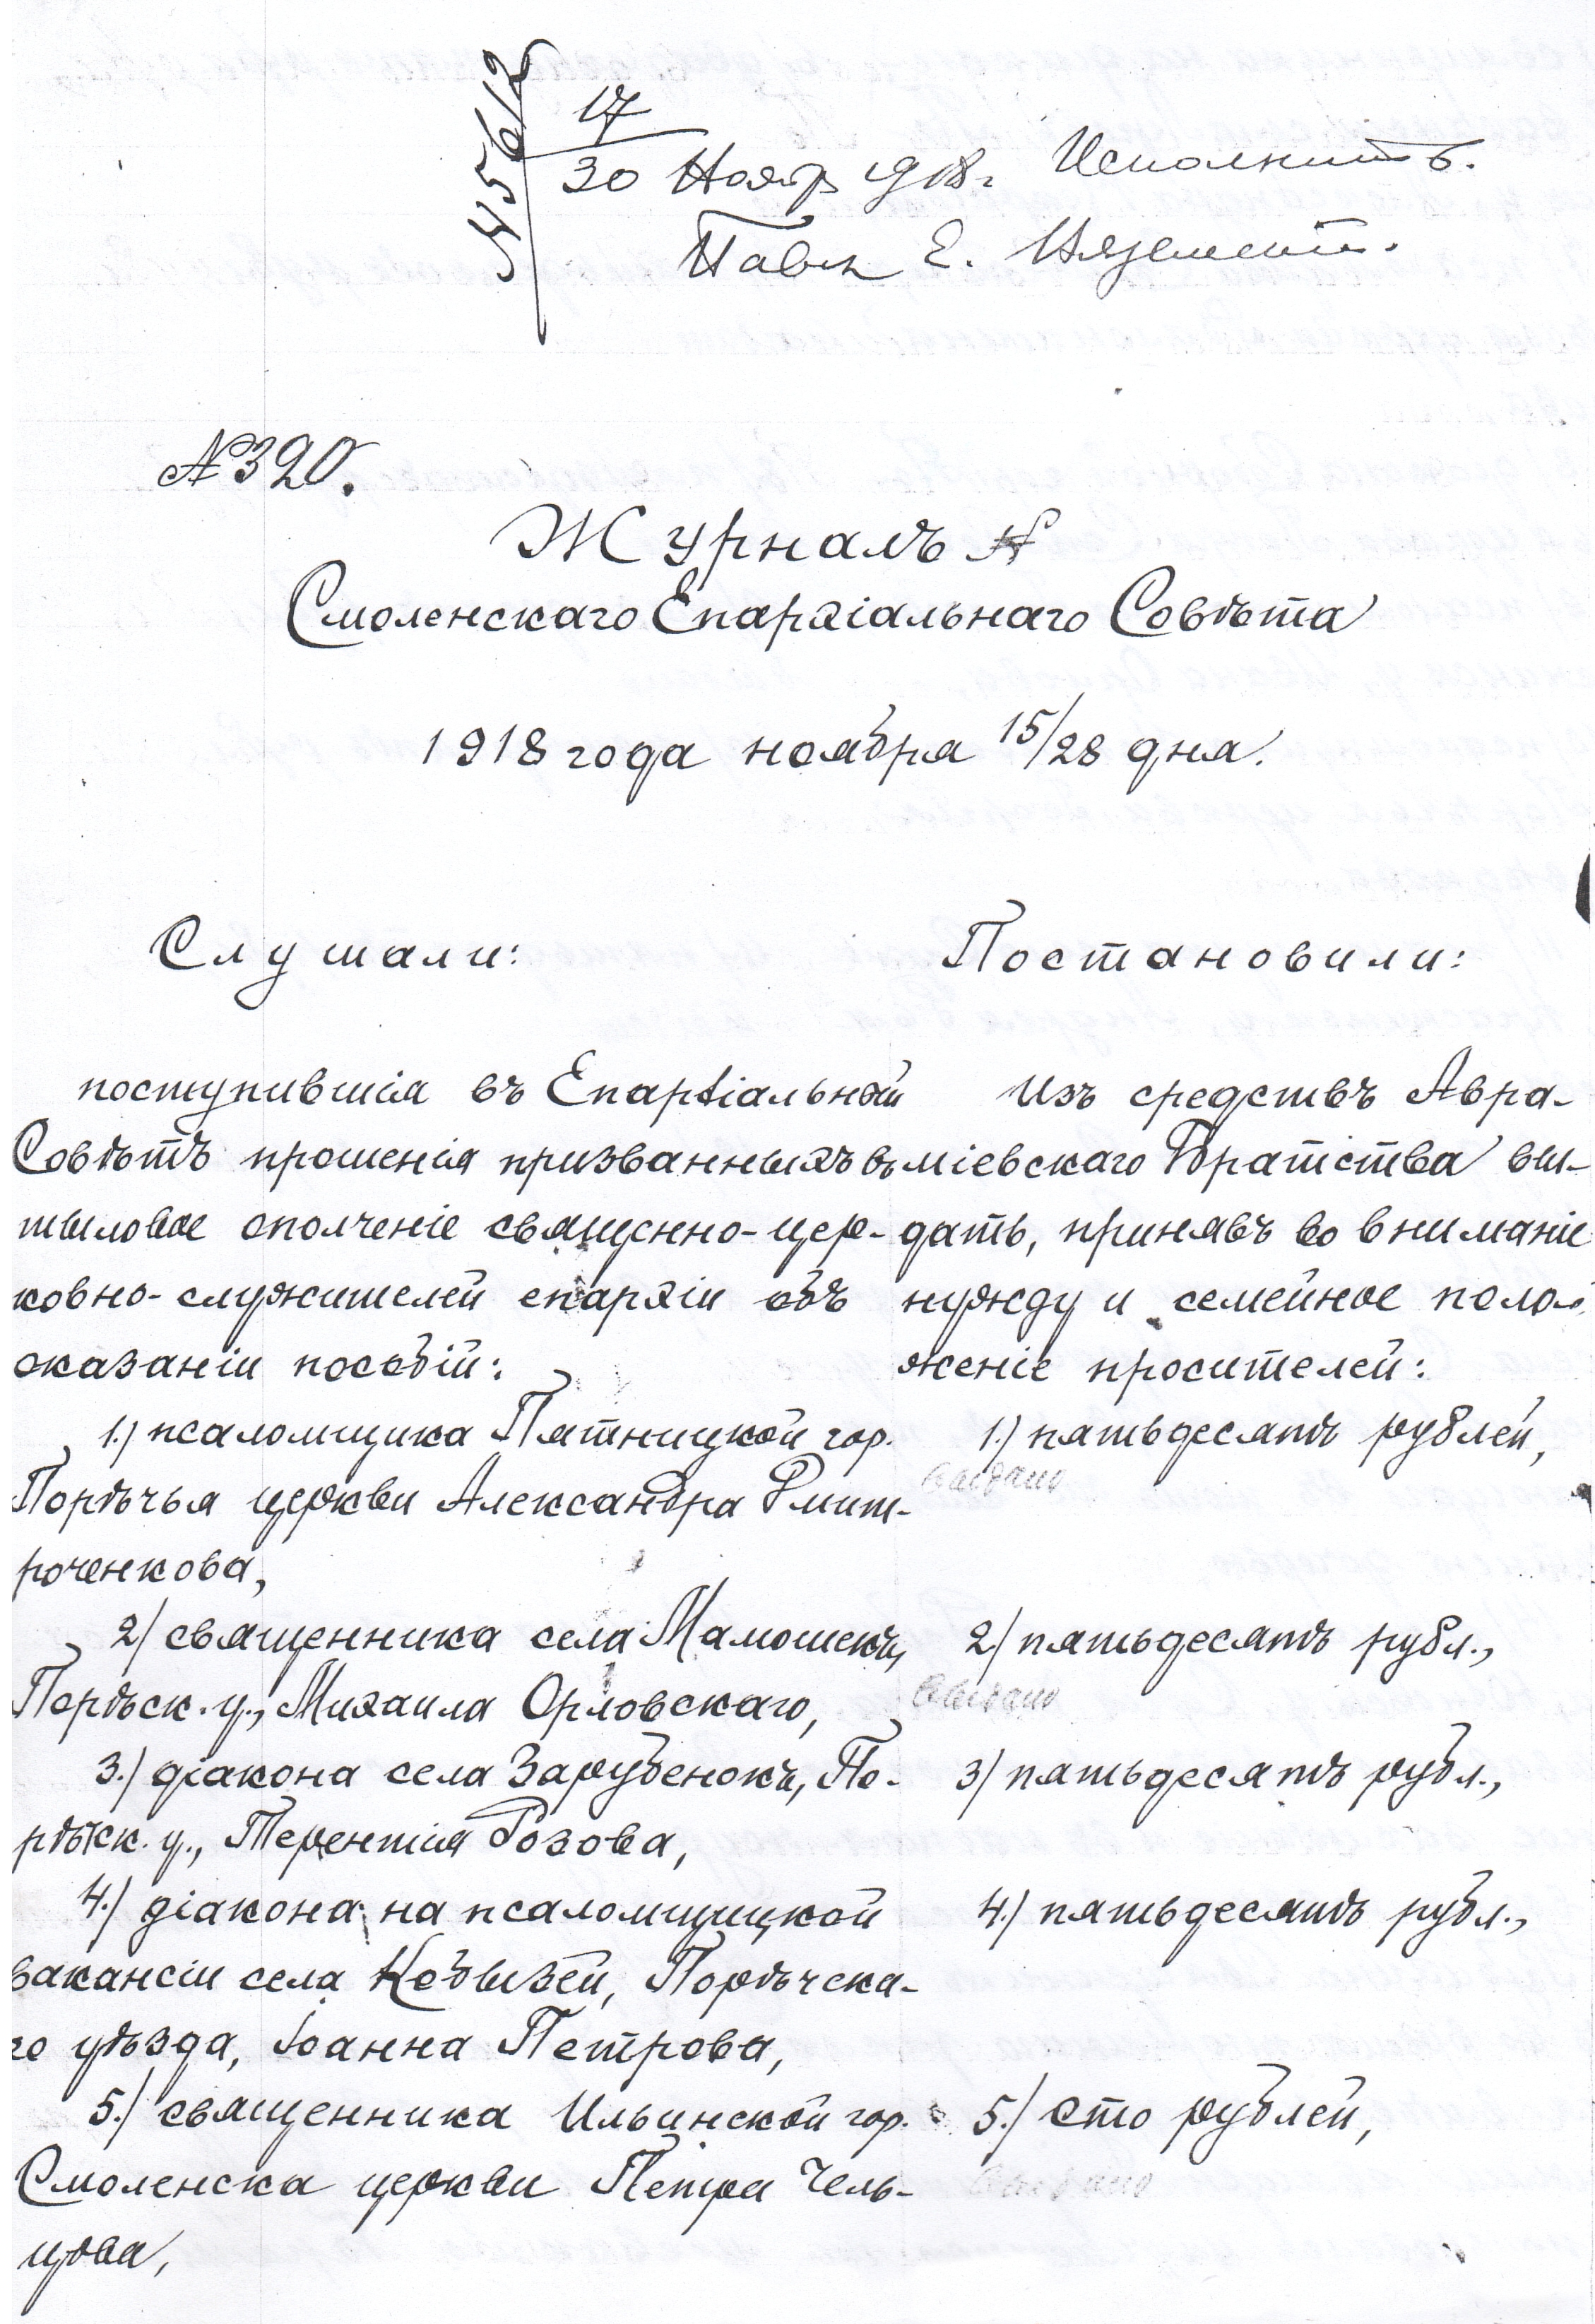 № 5612
17
30 Нояр 1918 г. Исполнить.
Павел Е.
№ 320.
Журналъ №
Смоленскаго Епархіальнаго Совѣта
1918 года ноября 15/28 дня.
Слушали:
поступившія въ Епархіальный
Совѣтъ прошенія призванныхъ въ
тыловое ополченіе священно-цер-
ковно-служителей епархіи объ
оказаніи пособій:
1.) псаломщика Пятницкой гор.
Порѣчья церкви Александра Дмит-
роченкова,
2) священника села Мамошекъ,
Порѣск. у., Михаила Орловскаго,
3.) діакона села Зарубенокъ, По-
рѣтск. у., Терентія Розова,
4.) діакона на псаломщицкой
вакансіи села Кобызей, Порѣчска-
го уѣзда, Іоанна Петрова,
5.) священника Ильинской гор.
Смоленска церкви Петра Чель-
цова,
Постановили:
Изъ средствъ Авра-
міевскаго Братства вы-
дать, принявъ во вниманіе
нужду и семейное поло-
женіе просителей:
1.) пятьдесятъ рублей,
Выдано
2) пятьдесятъ рубл.,
Выдано
3) пятьдесятъ рубл.,
4.) пятьдесятъ рубл.,
5.) сто рублей,
Выдано